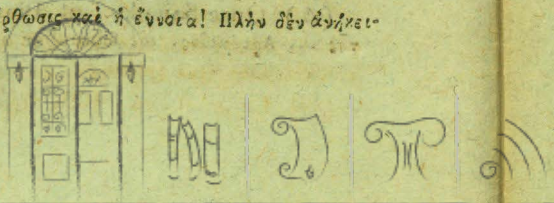 ρθωσις καὶ ἡ ἔννοια! Πλὴν δὲν ἀνήκει·